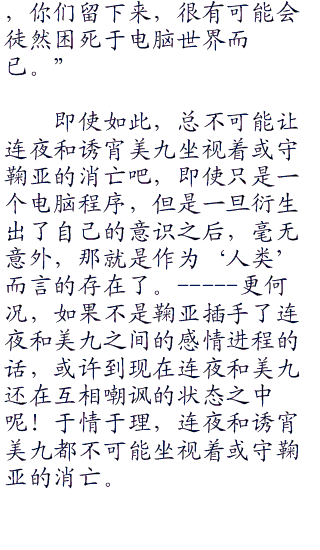 ，你们留下来，很有可能会
徒然困死于电脑世界而
已。”
即使如此，总不可能让
连夜和诱宵美九坐视着或守
鞠亚的消亡吧，即使只是一
个电脑程序，但是一旦衍生
出了自己的意识之后，毫无
意外，那就是作为‘人类’
而言的存在了。-----更何
况，如果不是鞠亚插手了连
夜和美九之间的感情进程的
话，或许到现在连夜和美九
还在互相嘲讽的状态之中
呢！于情于理，连夜和诱宵
美九都不可能坐视着或守鞠
亚的消亡。